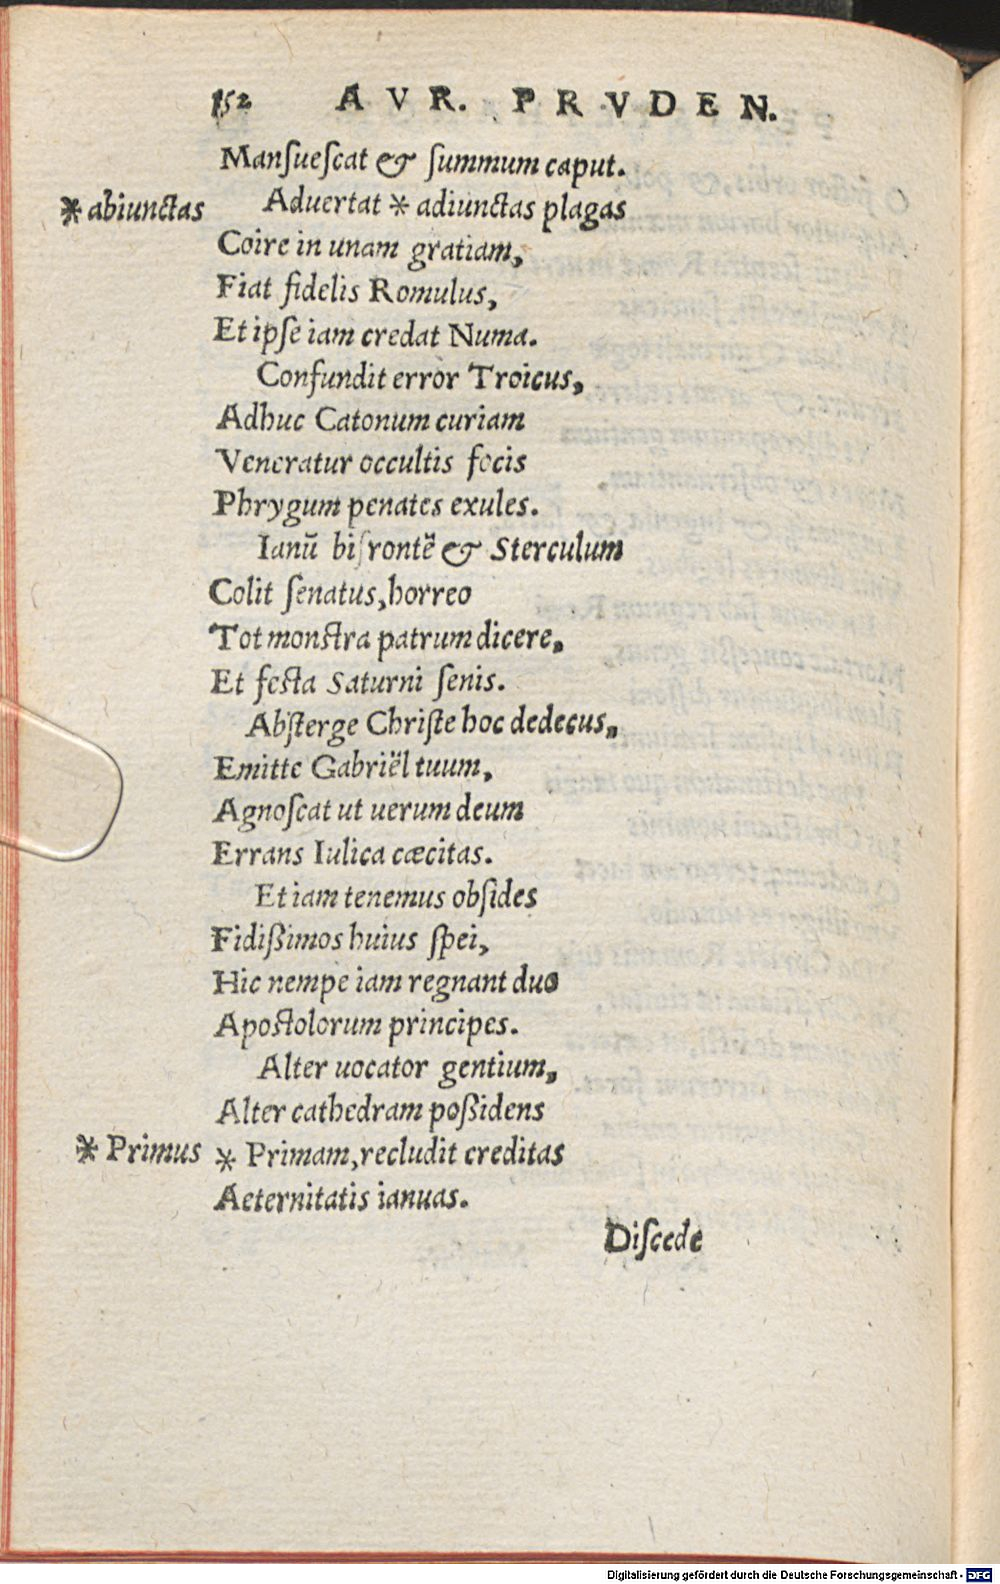 152 AVR. PRVDEN.
Manſueſcat & ſummum caput.
* abiunctas Aduertat * adiunctas plagas
Coire in unam gratiam,
Fiat fidelis Romulus,
Et ipſe iam credat Numa.
Confundit error Troicus,
Adhuc Catonum curiam
Veneratur occultis focis
Phrygum penates exules.
Ianū bifrontē & Sterculum
Colit ſenatus, horreo
Tot monſtra patrum dicere,
Et feſta Saturni ſenis.
Abſterge Chriſte hoc dedecus,
Emitte Gabriël tuum,
Agnoſcat ut uerum deum
Errans Iulica cæcitas.
Et iam tenemus obſides
Fidißimos huius ſpei,
Hic nempe iam regnant duo
Apoſtolorum principes.
Alter uocator gentium,
Alter cathedram poßidens
* Primus * Primam, recludit creditas
Aeternitatis ianuas.
Diſcede
Digitalisierung gefördert durch die Deutsche Forschungsgemeinschaft - DFG